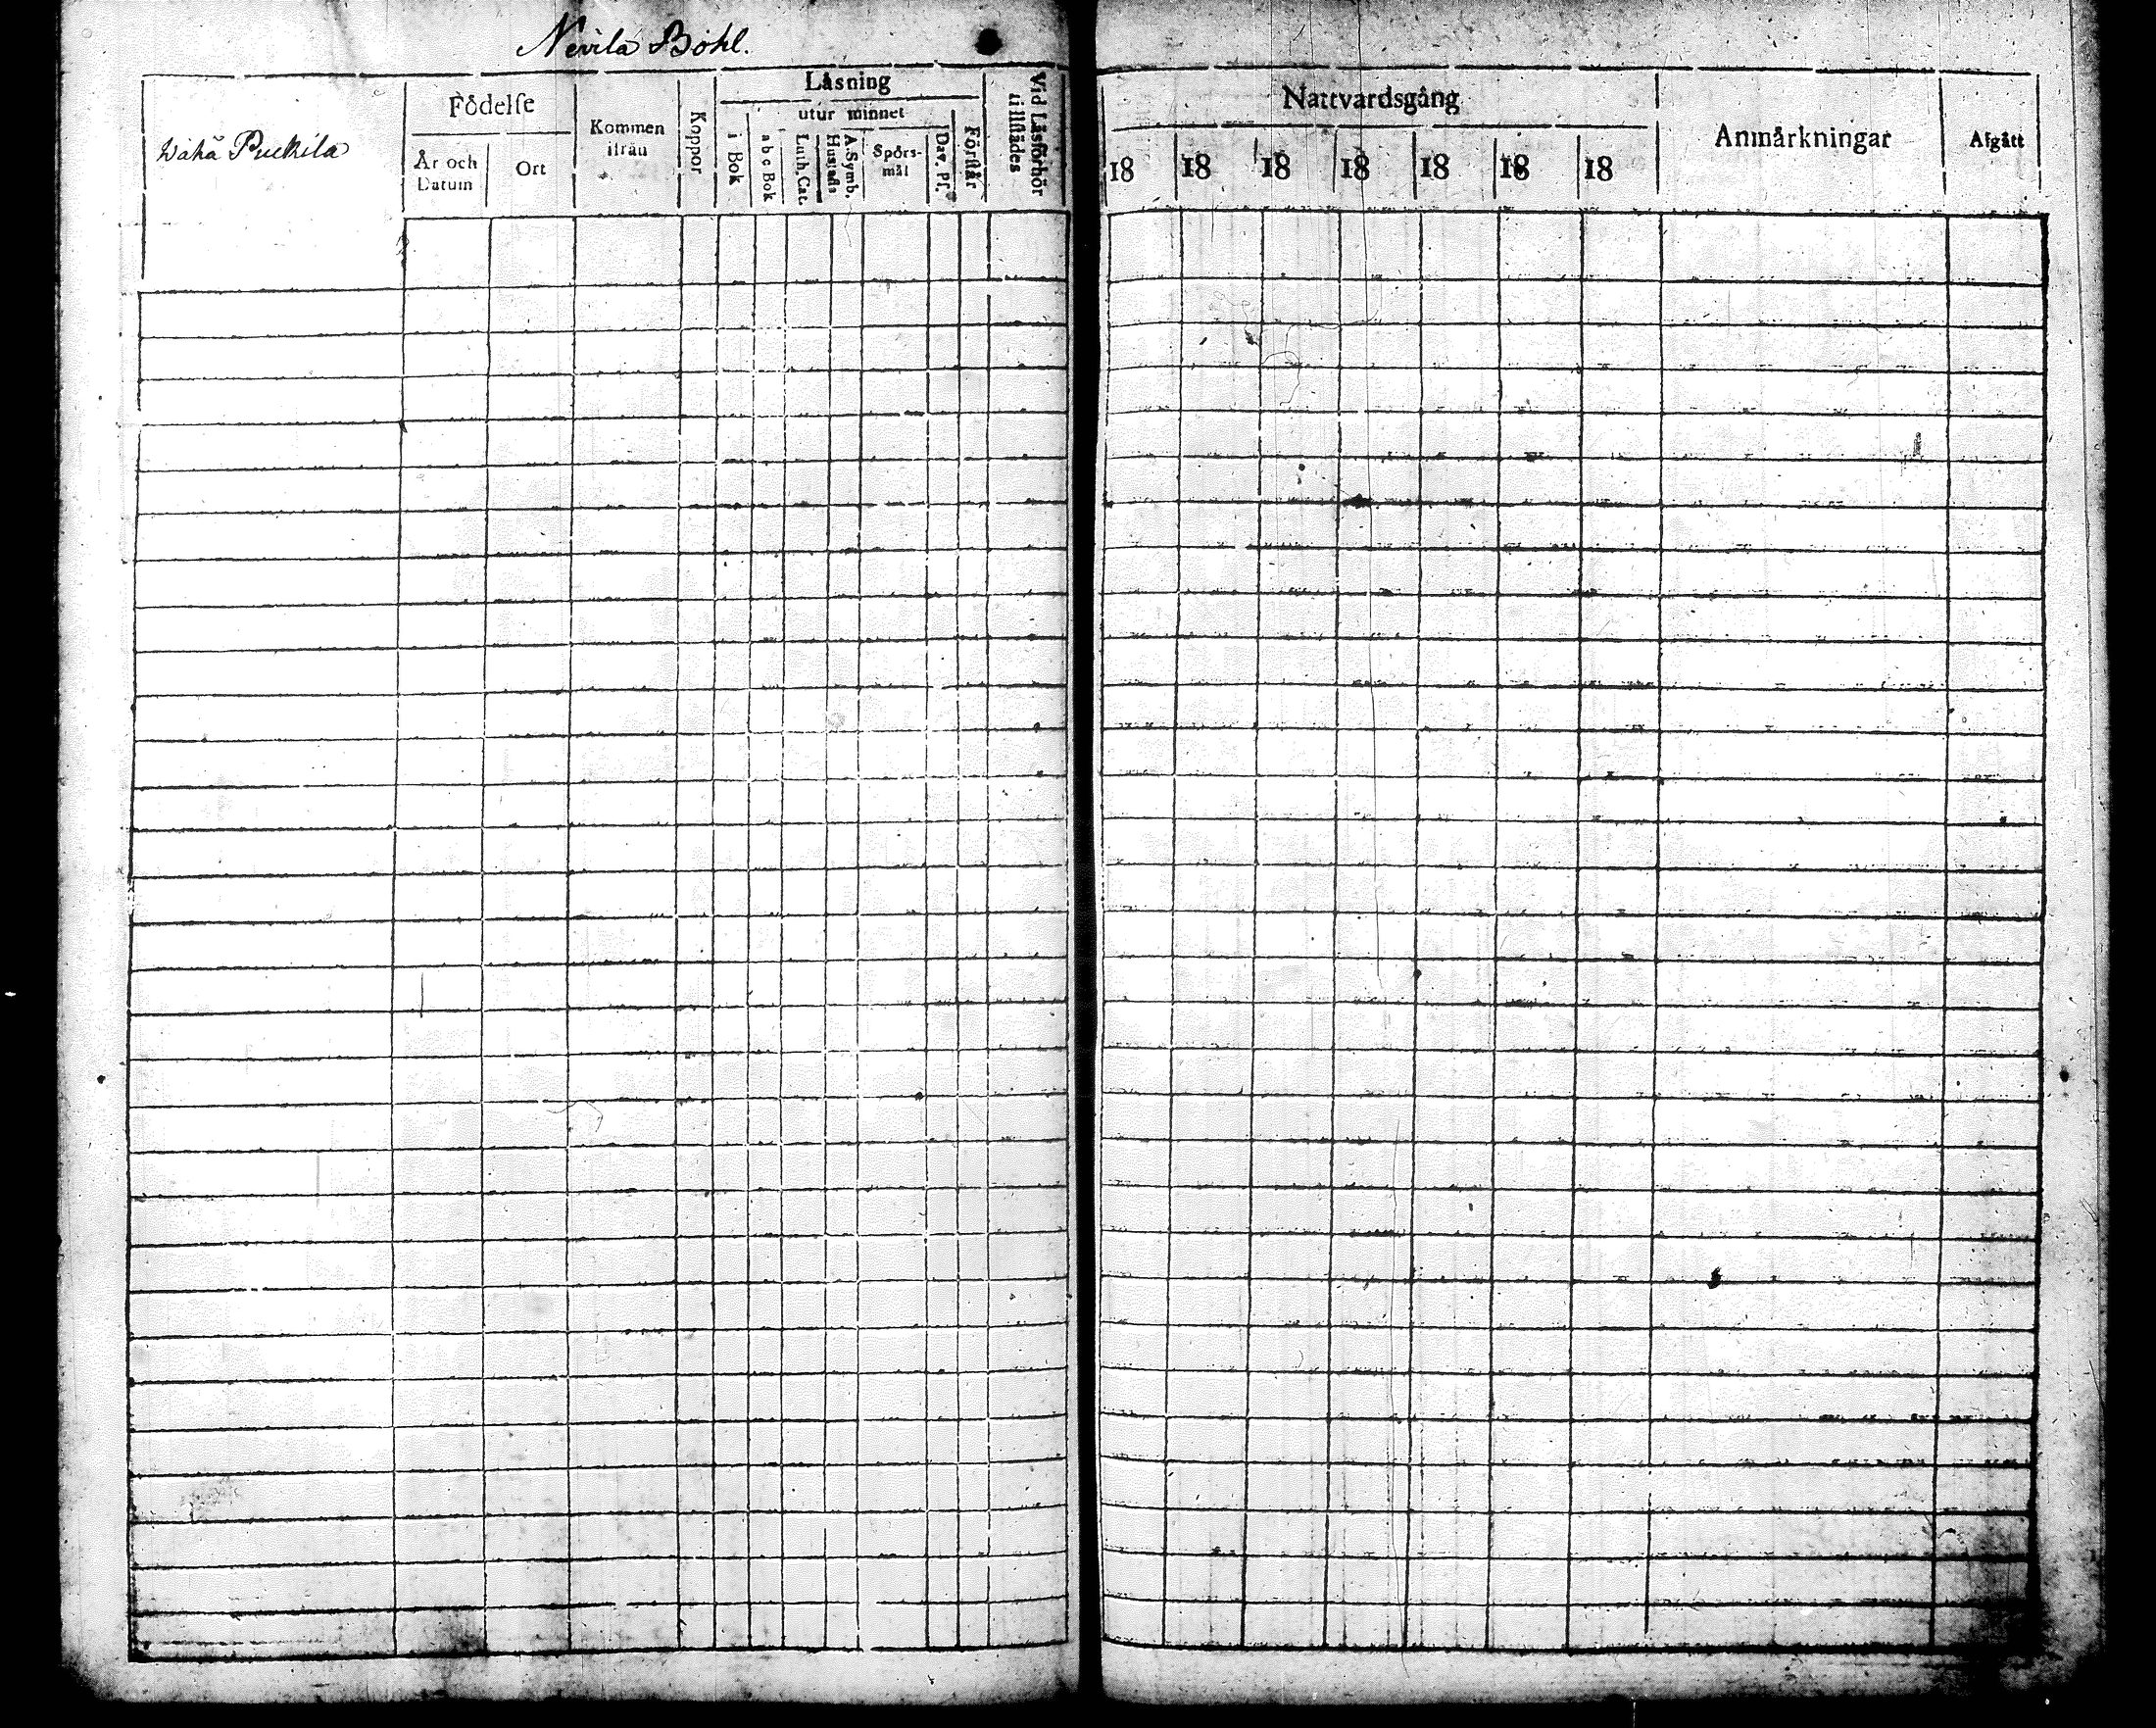 Nevilä Böhl.
Wähä Puckila
Födelse
År och Datum
Ort
Kommen ifrån
Koppor
Läsning
i Bok
utur minnet
a b c Bok
Luth. Cat.
A. Symb. Hustafla
Spörs-mål
Dav. Ps.
Förstår
Vid Läsförhör tillstädes
Nattvardsgång
18 18 18 18 18 18 18
Anmärkningar
Afgått